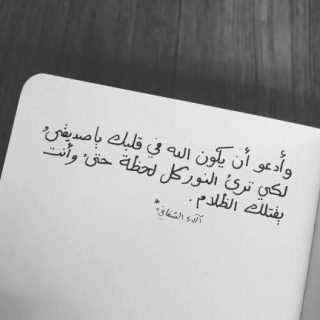 وأدعو أن يكون الله في قلبك ياصديقي
لكي ترى النور كل لحظة حتى وأنت
يقتلك الظلام.
آلاء الشقاقي*